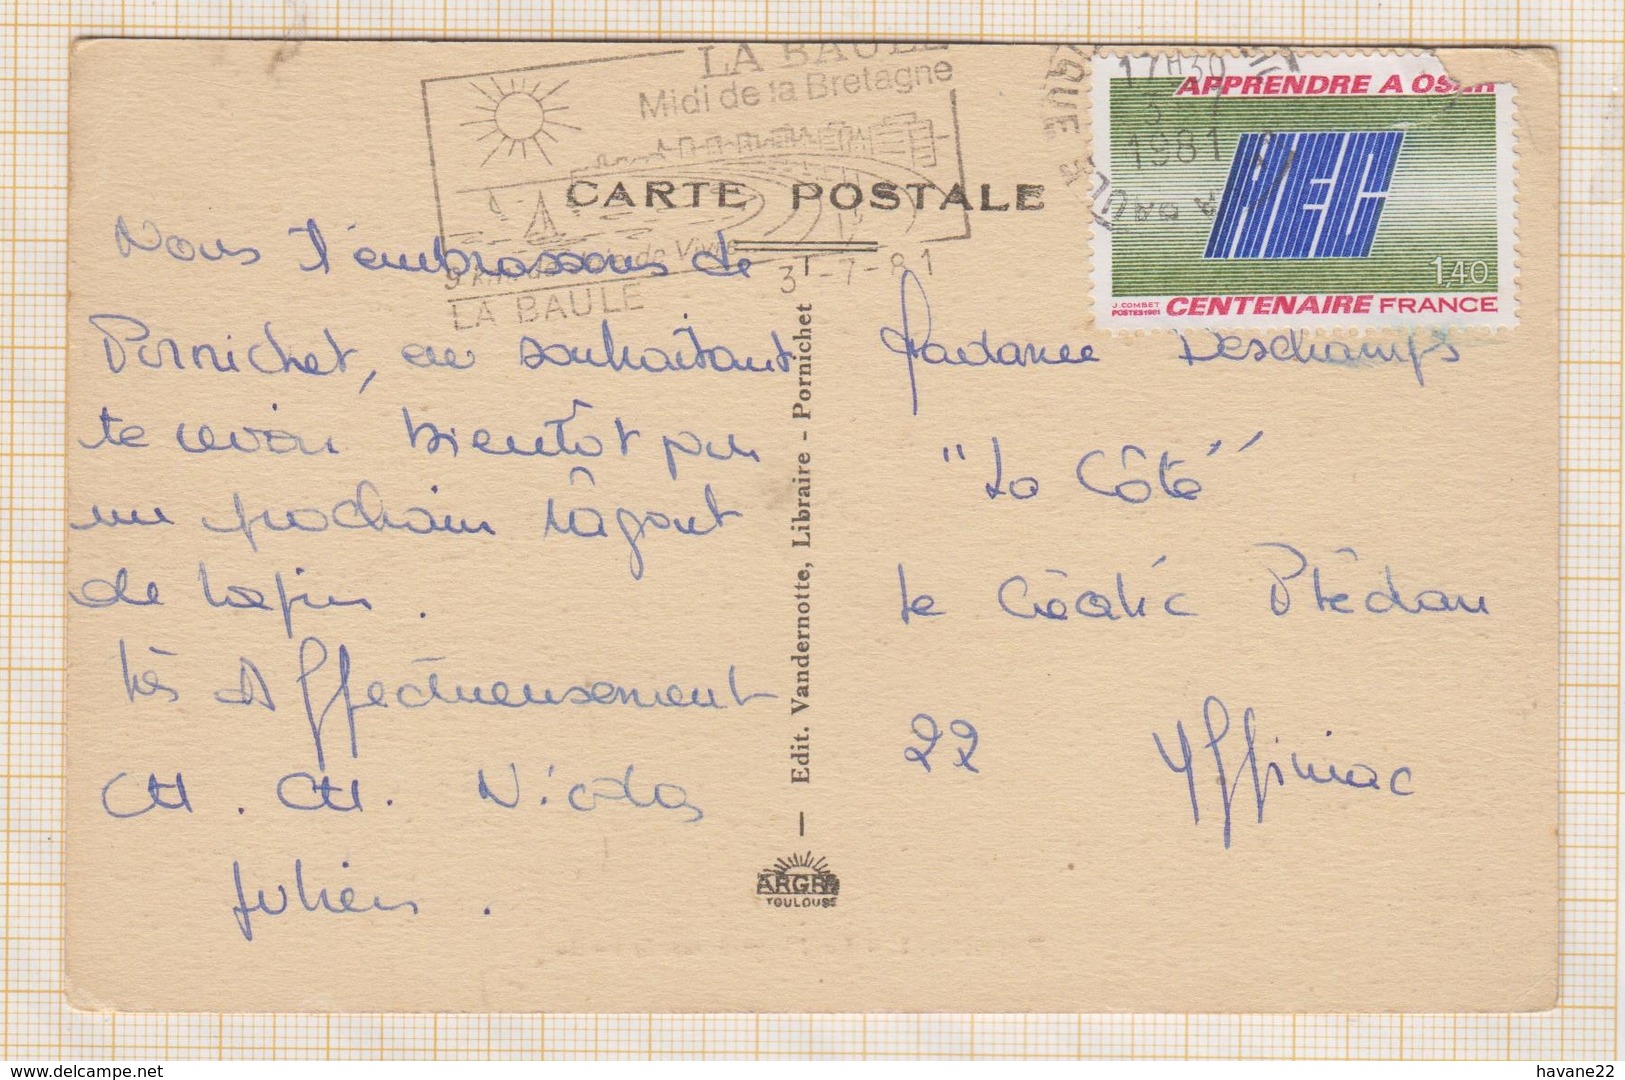 LA BAULE
Midi de la Bretagne
LA BAULE
31-7-81
17H30
1981
CARTE POSTALE
APPRENDRE A OSER
HEC
1,40
J. COMBET
POSTES 1981
CENTENAIRE FRANCE
Nous t'embrassons de
Pornichet, en souhaitant
te revoir bientôt pour
un prochain ragout
de lapin.
très Affectueusement
CH. CH. Nicolas
Julien.
Edit. Vandernotte, Libraire - Pornichet —
ARGRA
TOULOUSE
Madame Deschamps
"La Côte"
Le Créalic Plédran
22 Yffiniac
www.delcampe.net
havane22